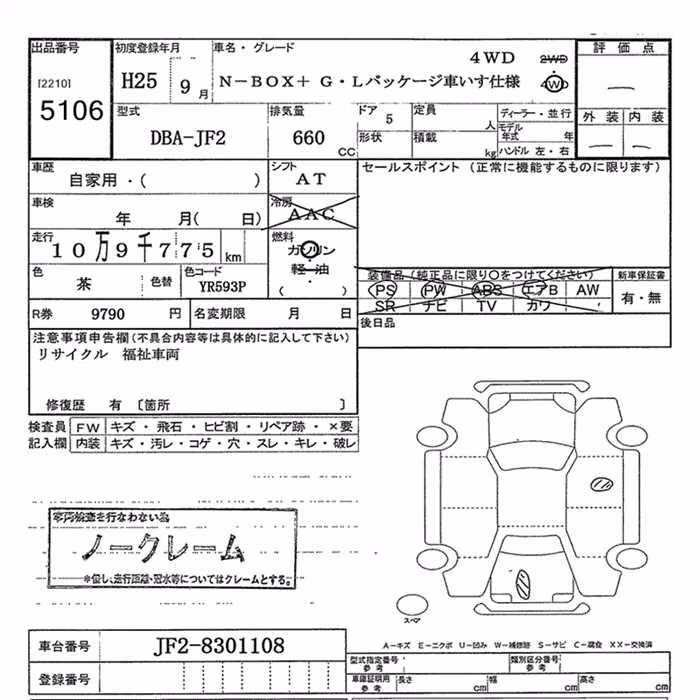 出品番号
[2210]
5106
初度登録年月
H25 9 月
車名・グレード
4WD 2WD
N-BOX+ G・Lパッケージ車いす仕様 4WD
評価点
外装 内装
型式
DBA-JF2
排気量
660 CC
ドア 5
形状
定員 人
積載 kg
ディーラー・並行
モデル年式 年
ハンドル 左・右
車歴
自家用・( )
シフト
AT
セールスポイント (正常に機能するものに限ります)
車検
年 月( 日)
冷房
AAC
走行
10万9千775 km
燃料
ガソリン
軽・油
( )
色
茶
色替
色コード
YR593P
装備品(純正品に限り○をつけてください)
PS PW ABS エアB AW
SR ナビ TV カワ
新車保証書
有・無
R券 9790 円
名変期限 月 日
後日品
注意事項申告欄(不具合内容等は具体的に記入して下さい)
リサイクル 福祉車両
修復歴 有 〔箇所 〕
検査員 FW キズ・飛石・ヒビ割・リペア跡・×要
記入欄 内装 キズ・汚レ・コゲ・穴・スレ・キレ・破レ
車両検査を行なわない為
ノークレーム
※但し、走行距離・冠水等についてはクレームとする。
スペア
車台番号 JF2-8301108
A-キズ E-エクボ U-凹み W-補修跡 S-サビ C-腐食 XX-交換済
登録番号
型式指定番号 参考
類別区分番号 参考
車庫証明用 参考
長さ cm
幅 cm
高さ cm